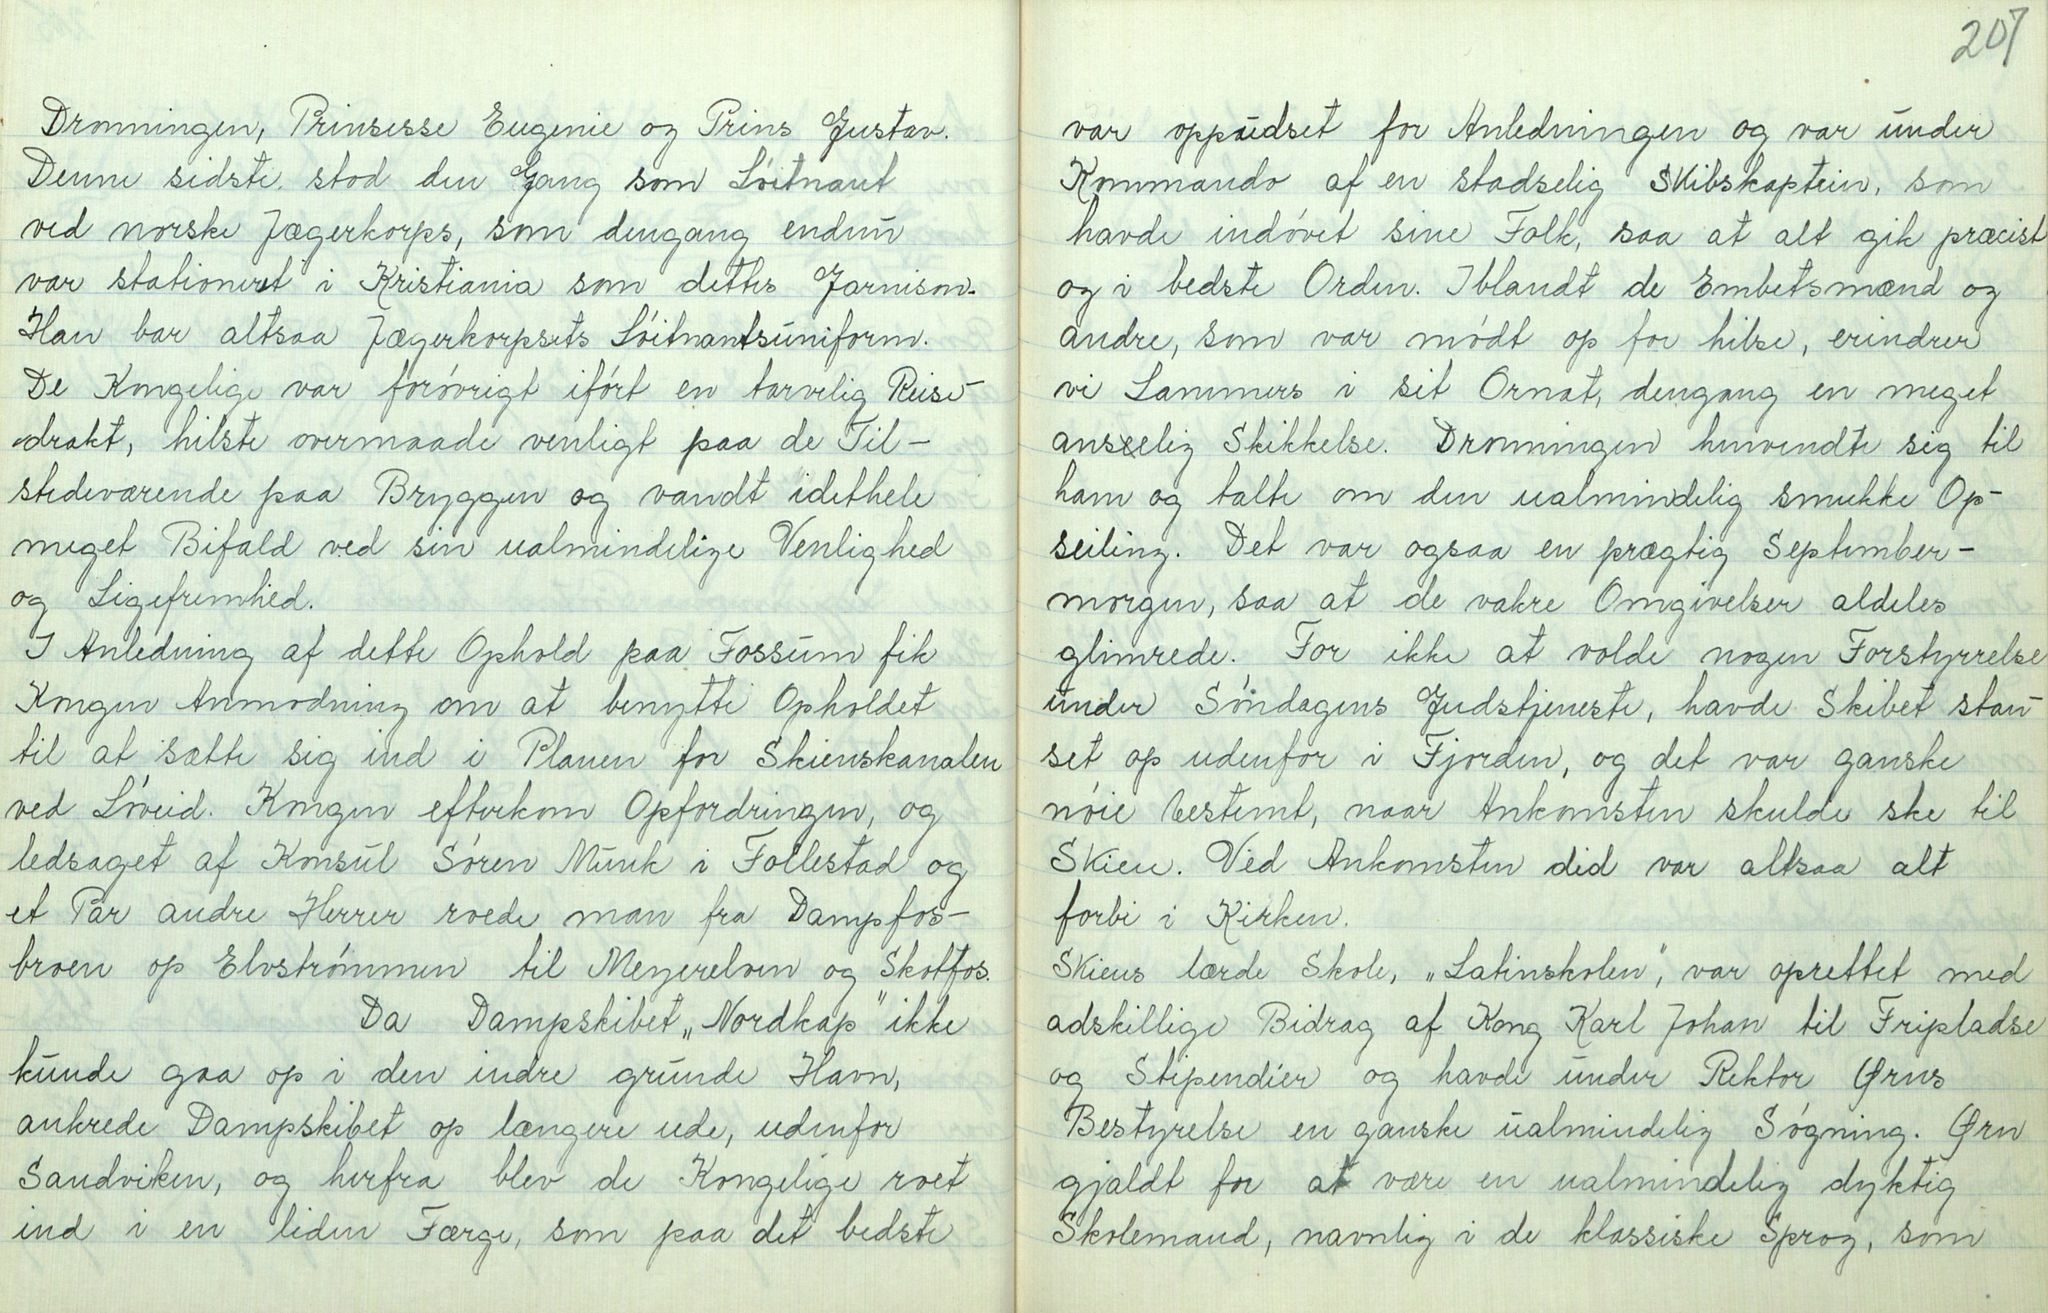 Dronningen, Prinsesse Eugenie og Prins Gustav.
Denne sidste stod den Gang som Löitnant
ved norske Jægerkorps, som dengang endnu
var stationeret i Kristiania som dettes Garnison.
Han bar altsaa Jægerkorpsets Löitnantsuniform.
De Kongelige var forövrigt ifört en tarvelig Reise-
drakt, hilste overmaade venligt paa de Til-
stedeværende paa Bryggen og vandt idethele
meget Bifald ved sin ualmindelige Venlighed
og Ligefremhed.
I Anledning af dette Ophold paa Fossum fik
Kongen Anmodning om at benytte Opholdet
til at sætte sig ind i Planen for Skienskanalen
ved Löveid. Kongen efterkom Opfordringen, og
ledsaget af Konsul Sören Munk i Follestad og
et Par andre Herrer roede man fra Dampfos-
broen op Elvströmmen til Meyerelven og Skotfos.
Da Dampskibet „Nordkap" ikke
kunde gaa op i den indre grunde Havn,
ankrede Dampskibet op længere ude, udenfor
Sandviken, og herfra blev de Kongelige roet
ind i en liden Færge, som paa det bedste
207
var oppudset for Anledningen og var under
Kommando af en stadselig Skibskaptein, som
havde indövet sine Folk, saa at alt gik præcist
og i bedste Orden. Iblandt de Embetsmænd og
andre, som var mödt op for hilse, erindrer
vi Lammers i sit Ornat, dengang en meget
anseelig Skikkelse. Dronningen henvendte sig til
ham og talte om den ualmindelig smukke Op-
seiling. Det var ogsaa en prægtig September-
morgen, saa at de vakre Omgivelser aldeles
glimrede. For ikke at volde nogen Forstyrrelse
under Söndagens Gudstjeneste, havde Skibet stan-
set op udenfor i Fjorden, og det var ganske
nöie bestemt, naar Ankomsten skulde ske til
Skien. Ved Ankomsten did var altsaa alt
forbi i Kirken.
Skiens lærde Skole, „Latinskolen", var oprettet med
adskillige Bidrag af Kong Karl Johan til Fripladse
og Stipendier og havde under Rektor Ørns
Bestyrelse en ganske ualmindelig Sögning. Ørn
gjaldt for at være en ualmindelig dyktig
Skolemand, navnlig i de klassiske Sprog, som